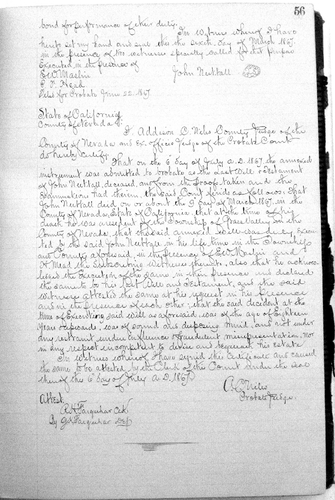 56
bond for performance of their duty.
In Witness whereof I have
hereto set my hand and seal this the sixth day of March 1867
in the presence of two witnesses specially called for this purpose
Executed in the presence of
John Nuttall
E W Maslin
Filed for Probate June 22. 1867
State of California
County of Nevada
I, Addison C. Niles County Judge of the
County of Nevada and Ex officio Judge of the Probate Court
do hereby certify That on the 6 day of July A.D. 1867 the annexed
instrument was admitted to probate as the Last Will & Testament
of John Nuttall, deceased, and from the proofs taken and the
Examination had therein, the said Court finds as follows: That
John Nuttall died on or about the day of March 1867, in the
County of Nevada, State of California that at the time of his
death he was a resident of the Township of Grass Valley in the
County of Nevada that the said annexed will was duly execu-
ted by the said John Nuttall in his life time in the Township
and County aforesaid, in the presence of E. W. Maslin and
Head the subscribing witnesses thereto, also that he acknow-
ledged the Execution of the same in their presence and declared
the same to be his last Will and testament, and the said
witnesses attested the same at his request in his presence
and in the presence of each other, that the said decedent at the
time of Executing said will as aforesaid was of the age of Eighteen
years & upwards, was of sound and disposing mind, and not under
any restraint, undue influence & fraudulent misrepresentation, nor
in any respect incompetent to devise and bequeath his estate
In Witness whereof I have signed this Certificate and caused
the same to be attested by the Clerk of this Court under the seal
thereof this 6 day of July A.D. 1867
A. C. Niles
Probate Judge.
Attest
Farquhar Clk
By G K Farquhar Dep